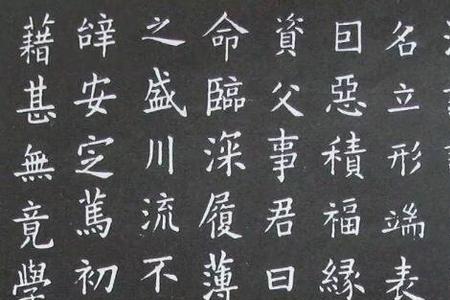 名立形端表
囙惡積福緣
資父事君曰
命臨深履薄
之盛川流不
辝安定篤初
藉甚無竟學